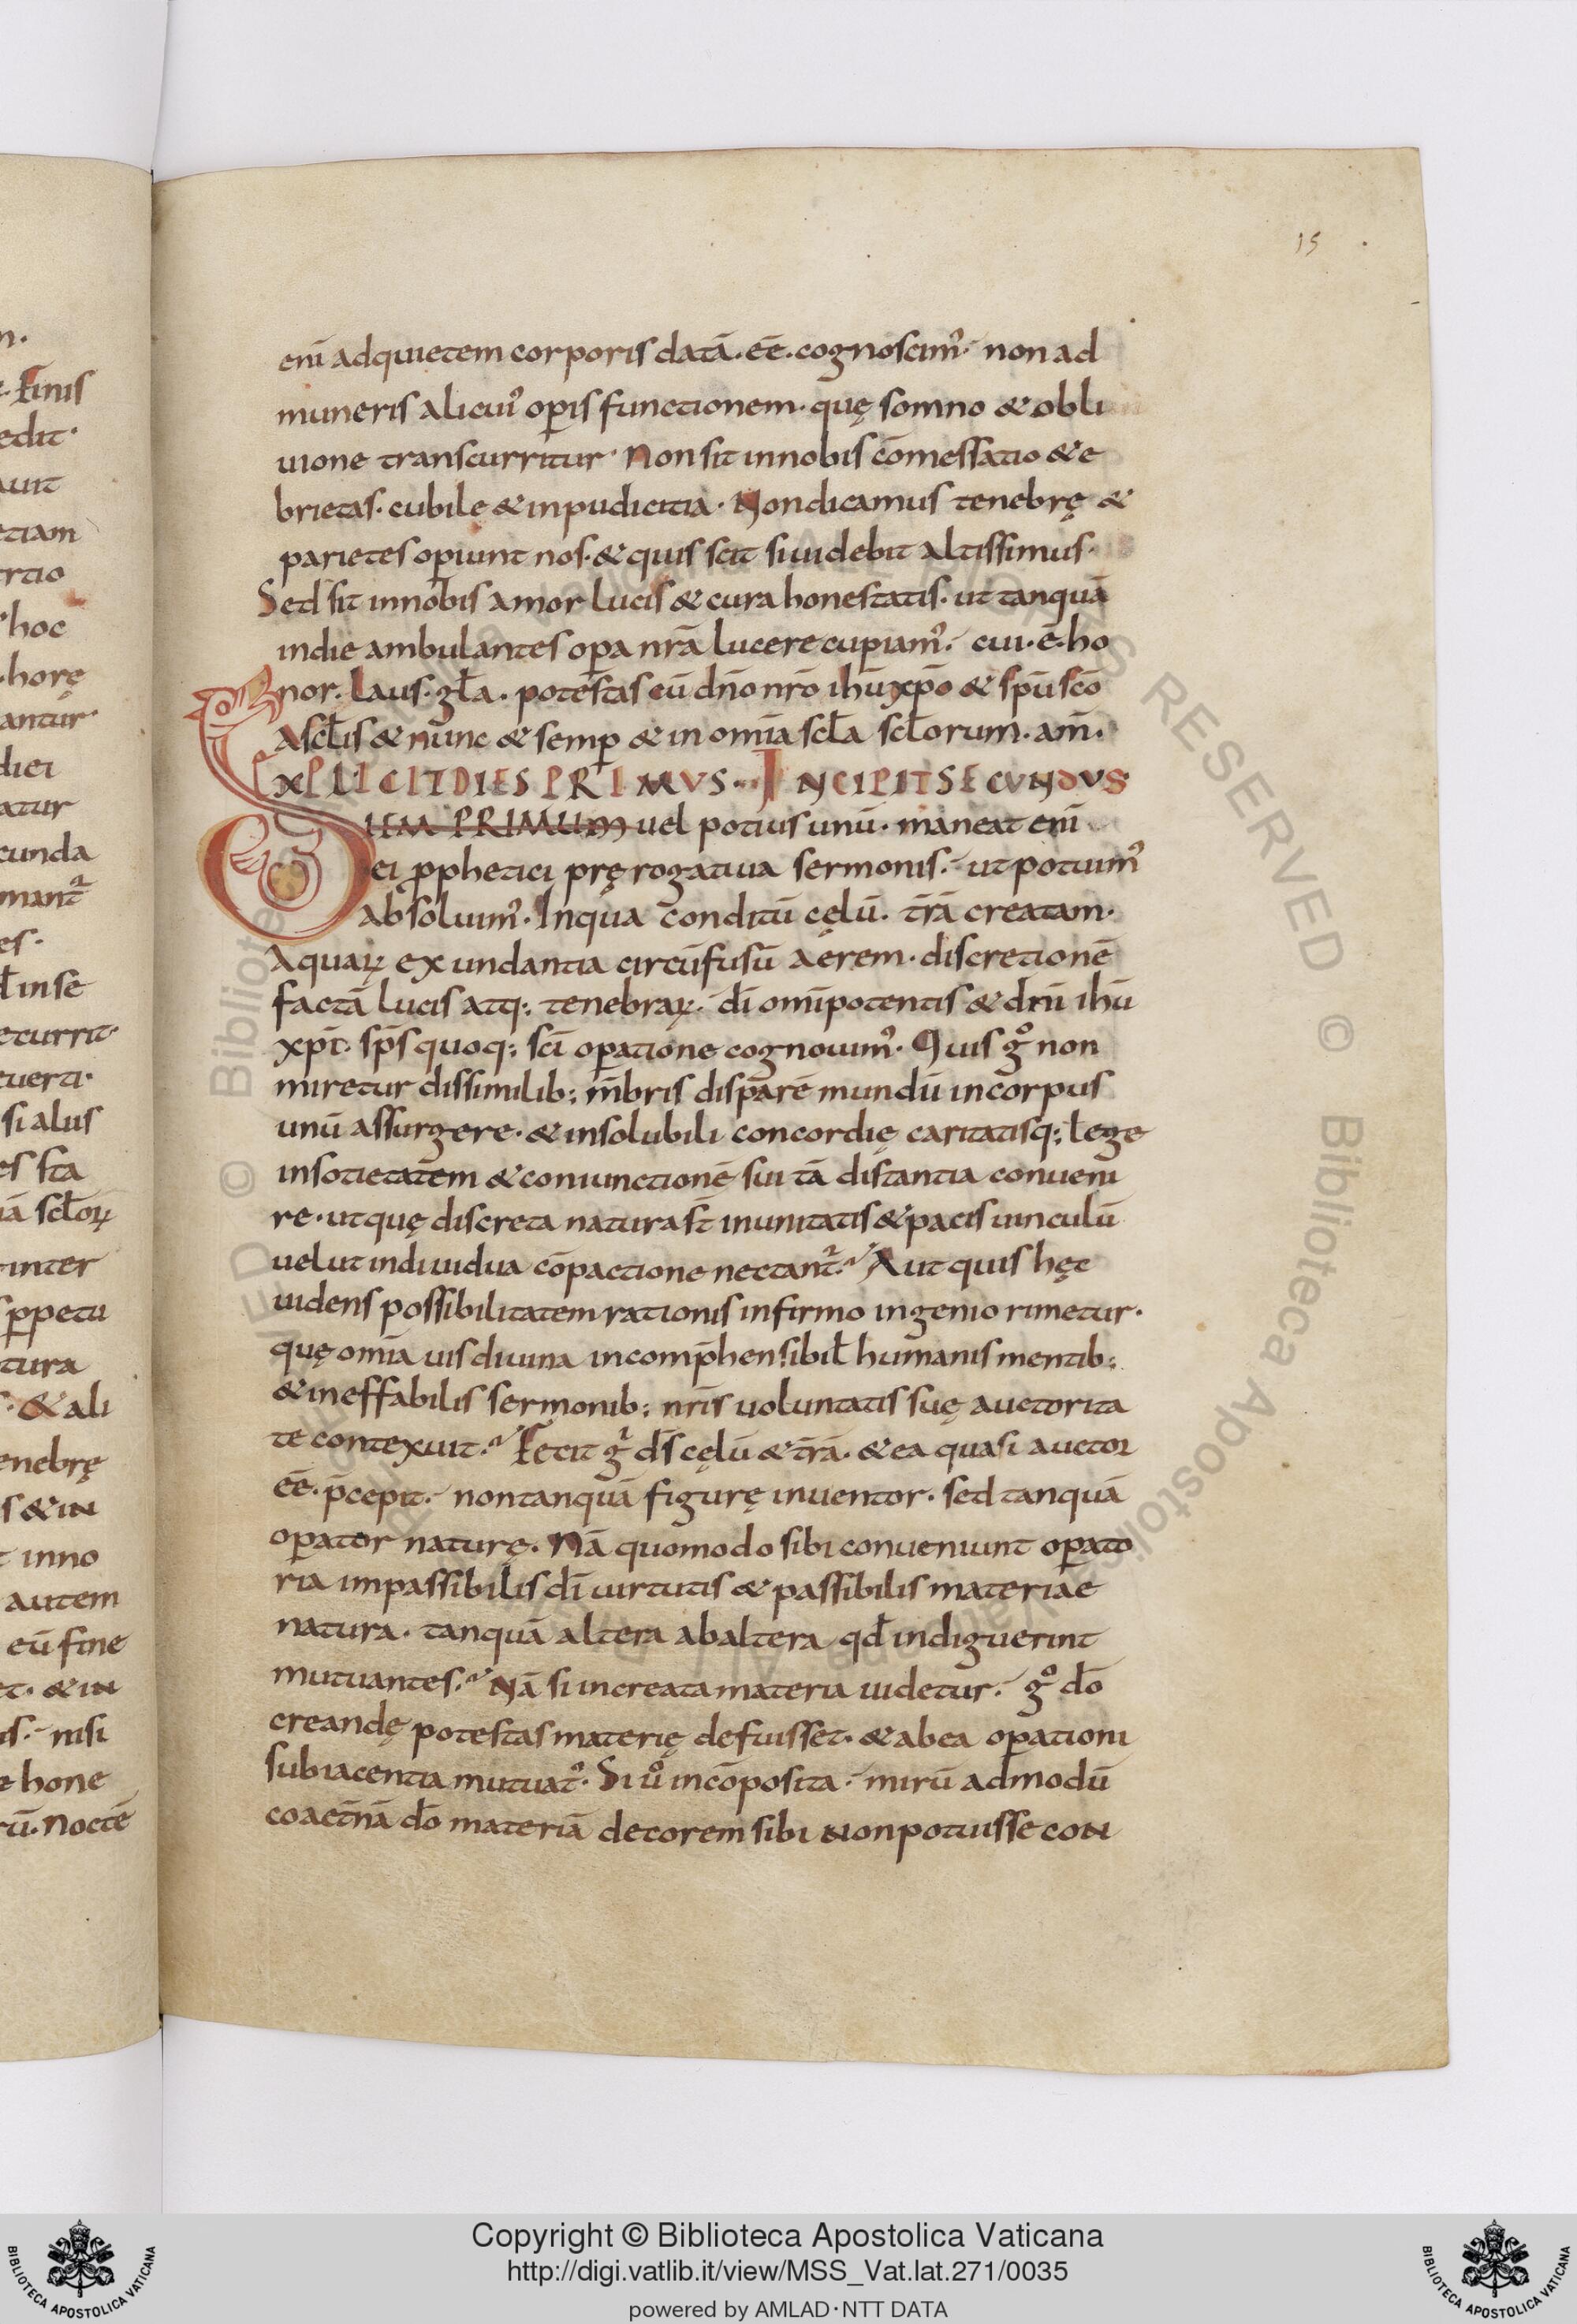 15
enī adquietem corporis datā· eē· cognoscim᾽· non ad
muneris alicui᾽ oꝑis functionem· quę somno & obli
uione transcurritur· Non sit innobis cōmessatio & e
brietas· cubile & inpudicitia· Non dicamus tenebrę &
parietes oꝑiunt nos· & quis scit si uidebit altissimus·
Sed sit innobis amor lucis & cura honestatis· ut tanquā
indie ambulantes oꝑa nr̄a lucere cupiam᾽· cui· ē· ho
nor· laus· gl̄a· potestas cū dn̄o nr̄o ih̄u xp̄o & sp̄u sc̄o
Ascl̄is & nunc & semꝑ & in om̄ia scl̄a scl̄orum· am̄·
EXPLICIT DIES PRIMUS· INCIPIT SECUNDUS
DIEM PRIMUM uel potius unū· maneat enī
ei ꝓphetici pręrogatiua sermonis· ut potuim᾽
absoluim᾽· Inqua conditū cęlū· tr̄ā creatam·
Aquaꝝ exundantia circūfusū aerem· discretionē
factā lucis atq; tenebraꝝ· dī om̄ipotentis & dn̄ī ih̄u
xp̄ī· sp̄s quoq; sc̄ī oꝑatione cognouim᾽· Quis gͦ non
miretur dissimilib; m̄bris disparē mundū incorpus
unū assurgere· & insolubili concordię caritatisq; lege
insotietatem & coniunctionē sui tā distantia conueni
re· ut quę discreta natura st̄ inunitatis & pacis uinculū
uelut indiuidua cōpactione nectant᾽· Aut quis hęc
uidens possibilitatem rationis infirmo ingenio rimetur·
quę om̄ia uis diuina incomp̄hensibil̄ humanis mentib;
& ineffabilis sermonib; nr̄is uoluntatis suę auctorita
te contexuit· Fecit gͥ ds̄ cęlū & tr̄ā· & ea quasi auctor
eē· p̄cepit· non tanquā figurę inuentor· sed tanquā
oꝑator naturę· Nā quomodo sibi conueniunt oꝑato
ria impassibilis dī uirtutis & passibilis materiae
natura· tanquā altera abaltera qd̄ indiguerint
mutuantes· Nā si increata materia uidetur· gͦ dō
creandę potestas materię defuisset· & abea oꝑationi
subiacentia mutuat᾽· Si uͦ incōposita· mirū admodū
coaet̄nā dō materiā decorem sibi non potuisse con
n·
Finis
edit·
auit
etiam
rtio
hoc
horę
antur·
diei
atur
cunda
mant᾽
es·
inse
ecurrit·
euerti·
si alus
es sta
iā scl̄oꝝ
inter
ꝑpetu
tura
& ali
enebrę
s & in
inno
autem
eū fine
et· & in
is· nisi
e hone
rū· Noctē
© Biblioteca Apostolica Vaticana ALL RIGHTS RESERVED
Copyright © Biblioteca Apostolica Vaticana
http://digi.vatlib.it/view/MSS_Vat.lat.271/0035
powered by AMLAD·NTT DATA
BIBLIOTECA APOSTOLICA VATICANA
BIBLIOTECA APOSTOLICA VATICANA